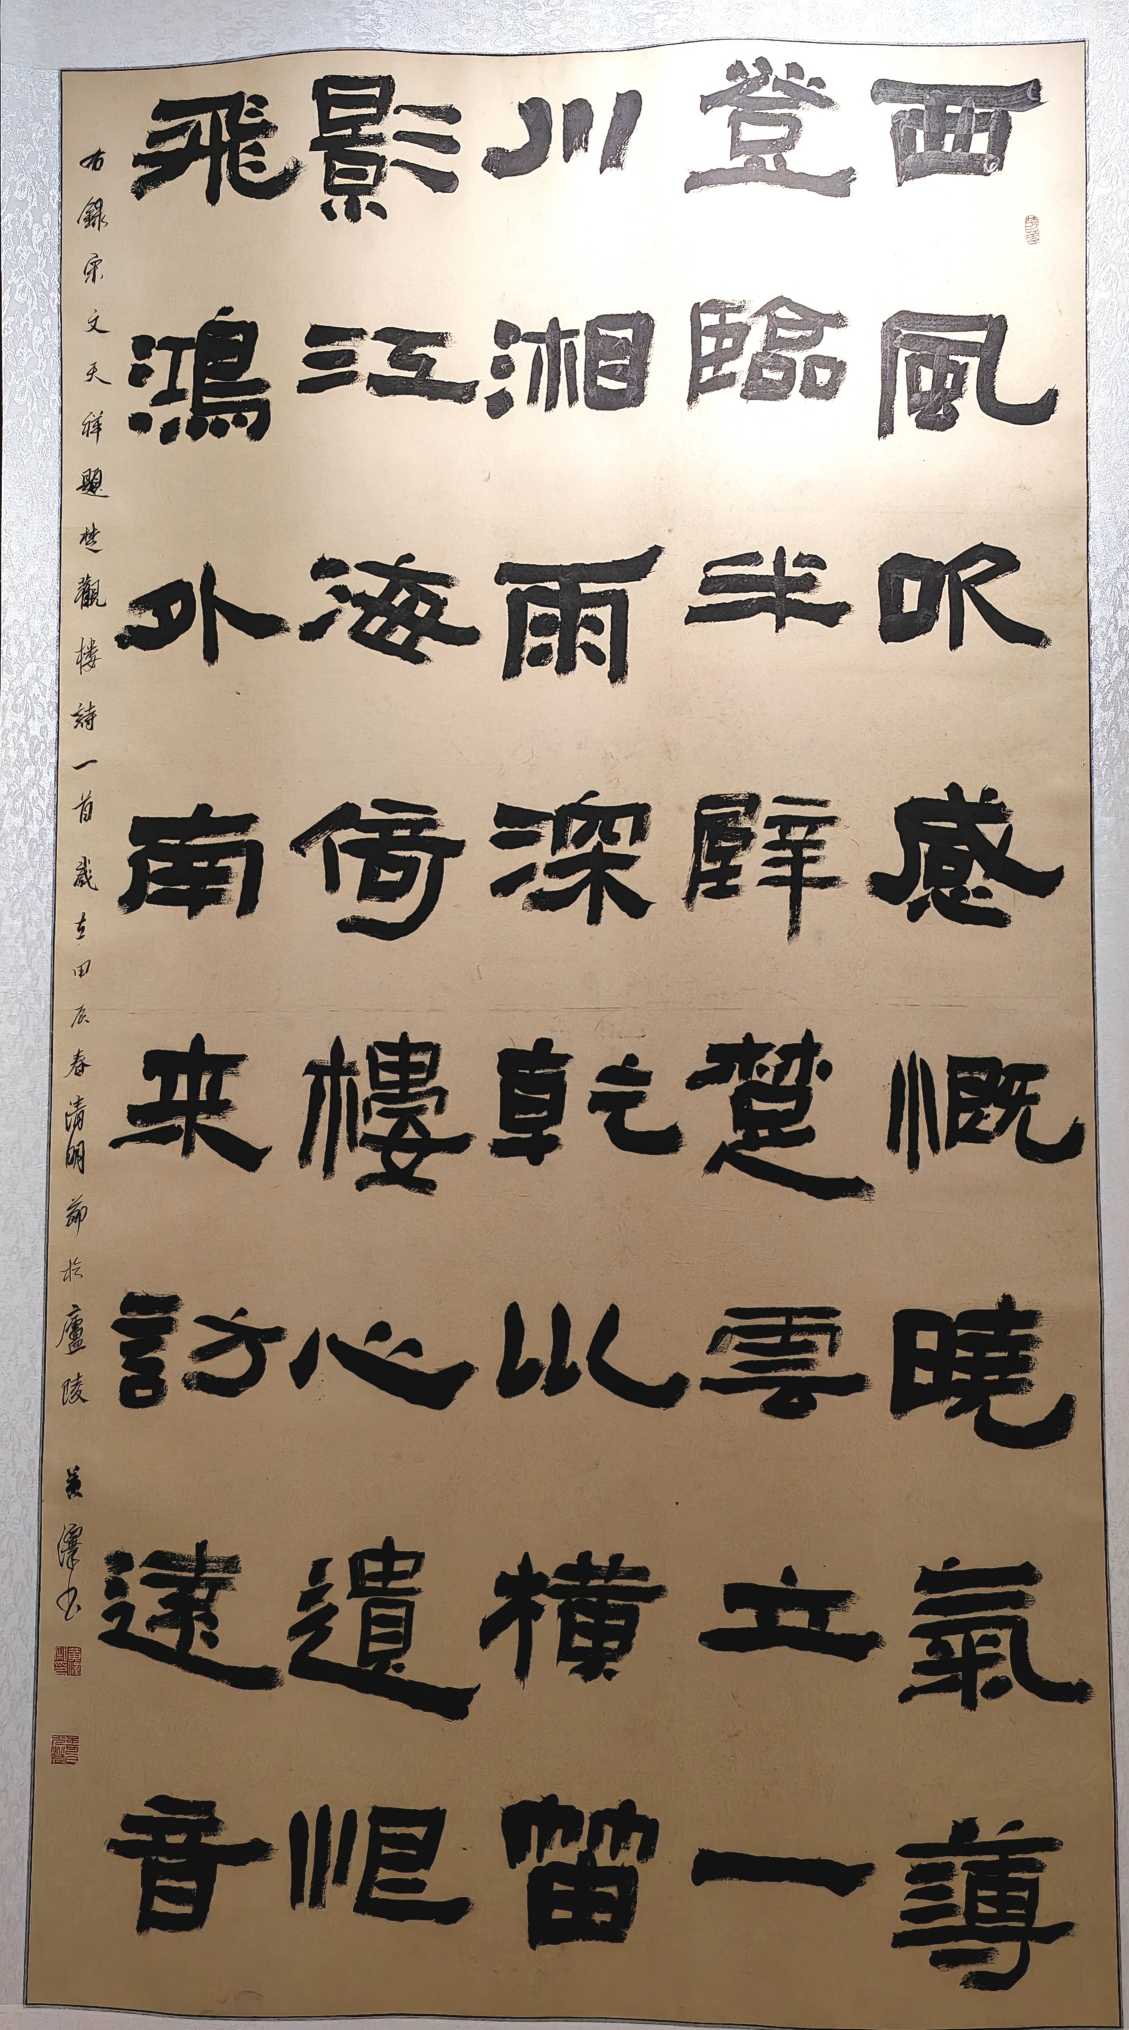 西風吹感慨曉氣薄
登臨半壁楚雲立一
川湘雨深乾坤横笛
影江海倚樓心遺恨
飛鴻外南来訪遠音
右錄宋文天祥題楚觀楼詩一首歲在甲辰春清明節於廬陵 黃澤书